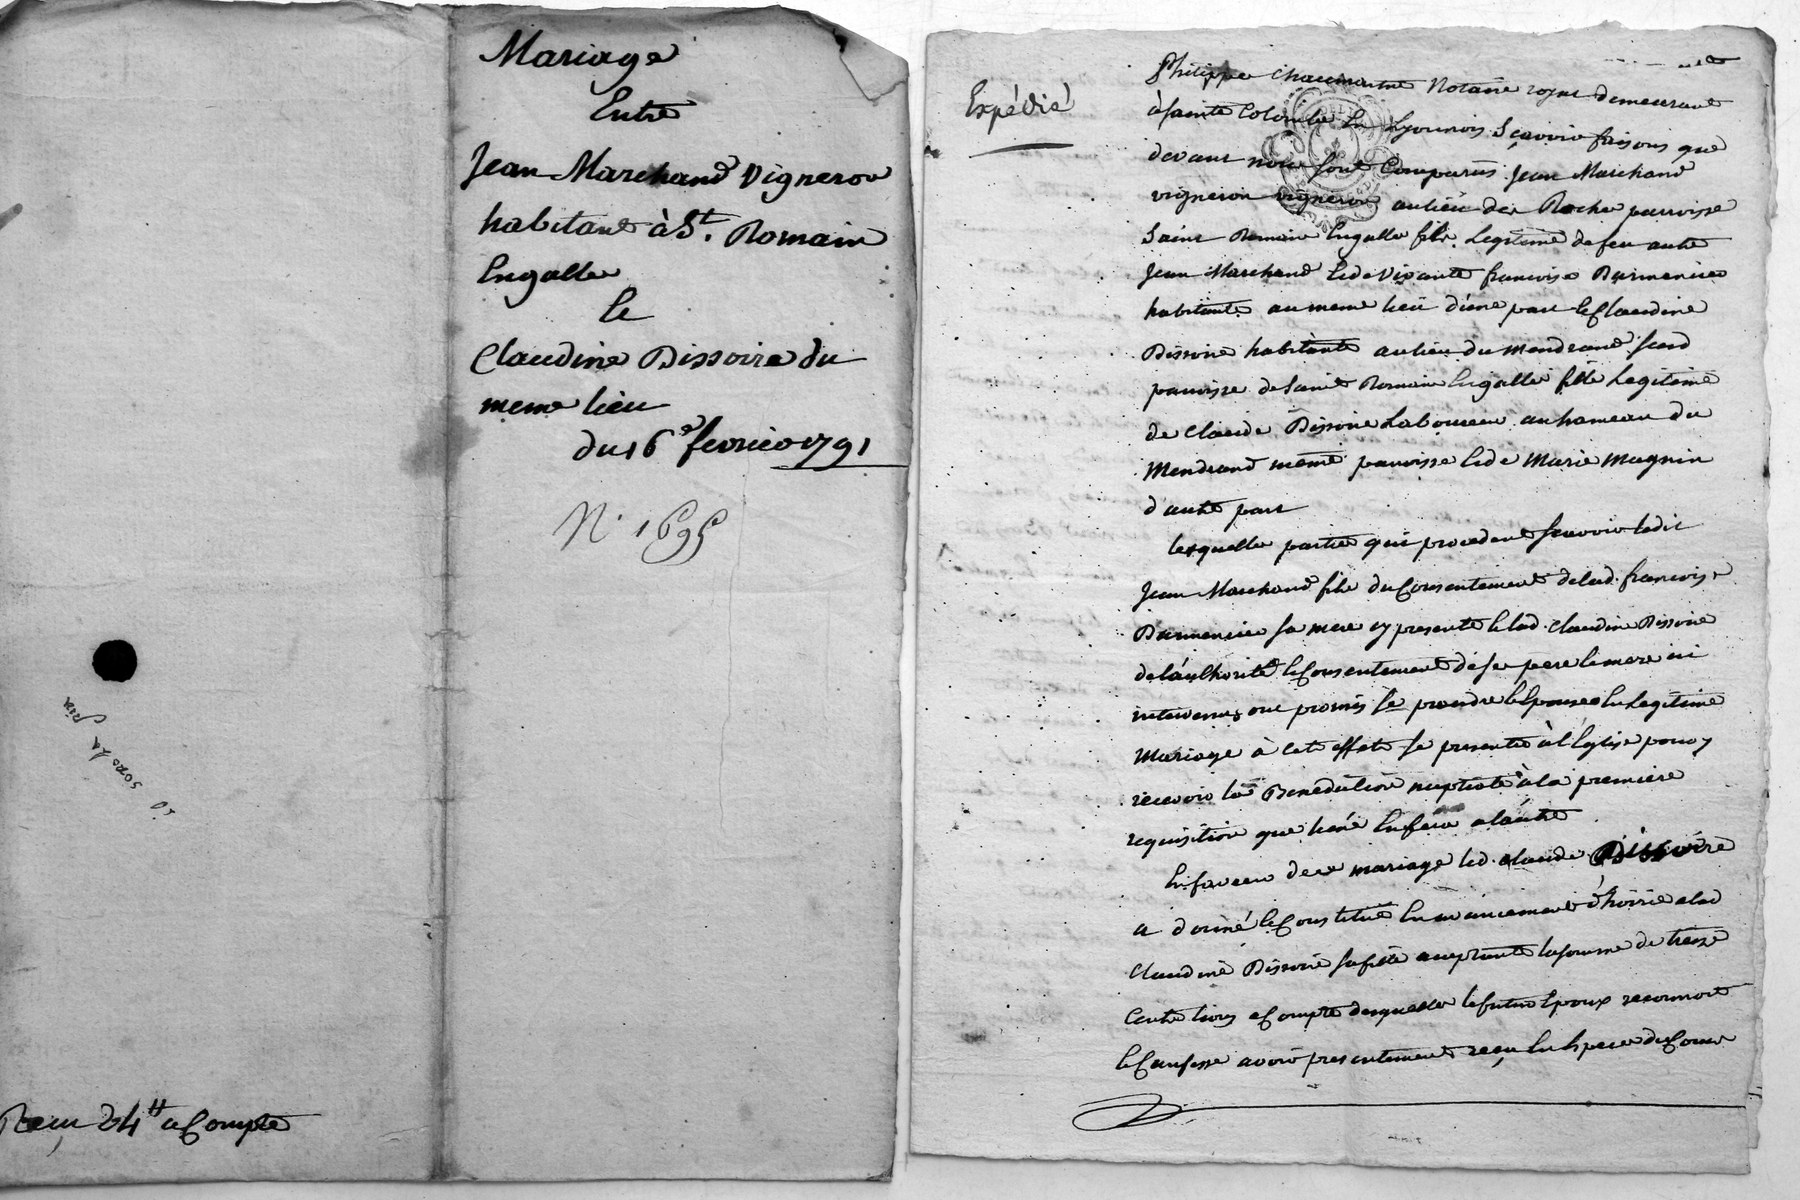 Mariage
Entre
Jean Marchand Vigneron
habitant à St. Romain
Engalle
Et
Claudine Dissoire du
meme lieu
du 16e fevrier 1791
N. 1695
Recu 24tt a Compte
Expédié
Philippe Chaumartin Notaire royal demeurant
à Sainte Colombe En Lyonnois Sçavoir faisons que
devant nous sont Comparus Jean Marchand
vigneron vigneron au lieu des Roches parroisse
Saint Romain Engalle fils Legitime de feu autre
Jean Marchand Et de Vivante francoise
habitante au meme lieu d'une part et Claudine
Dissoire habitante au lieu du Mendrand
parroisse de Saint Romain Engalle fille Legitime
de Claude Dissoire Laboureur au hameau du
Mendrand même parroisse Et de Marie Magnin
d'autre part
lesquelles parties qui procedent Scavoir ledit
Jean Marchand fils du Consentement de lad. francoise
sa mere cy presente Et lad. Claudine Dissoire
de l'authorité Et Consentement de ses pere Et mere ici
intervenus ont promis se prendre Et Epouser En Legitime
Mariage à Cet effet se presenter à l'Eglise pour y
recevoir la Benediction nuptiale à la premiere
requisition que l'un En fera a l'autre
En faveur de ce mariage led. Claude Dissoire
a donné Et Constitué En avancement d'hoirie a lad
Claudine Dissoire sa fille acceptante la somme de treize
Cents livres a Compte desquelles le futur Epoux reconnoit
Et Confesse avoir presentement reçu En Especes du Cours